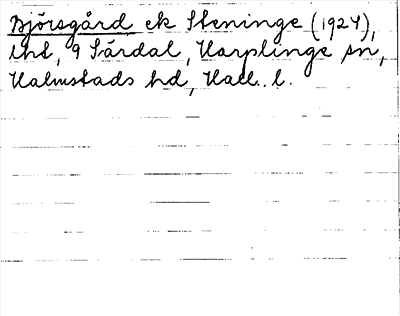 Björsgård ek Steninge (1924),
lht, 9 Särdal, Harplinge sn,
Halmstads hd, Hall. l.